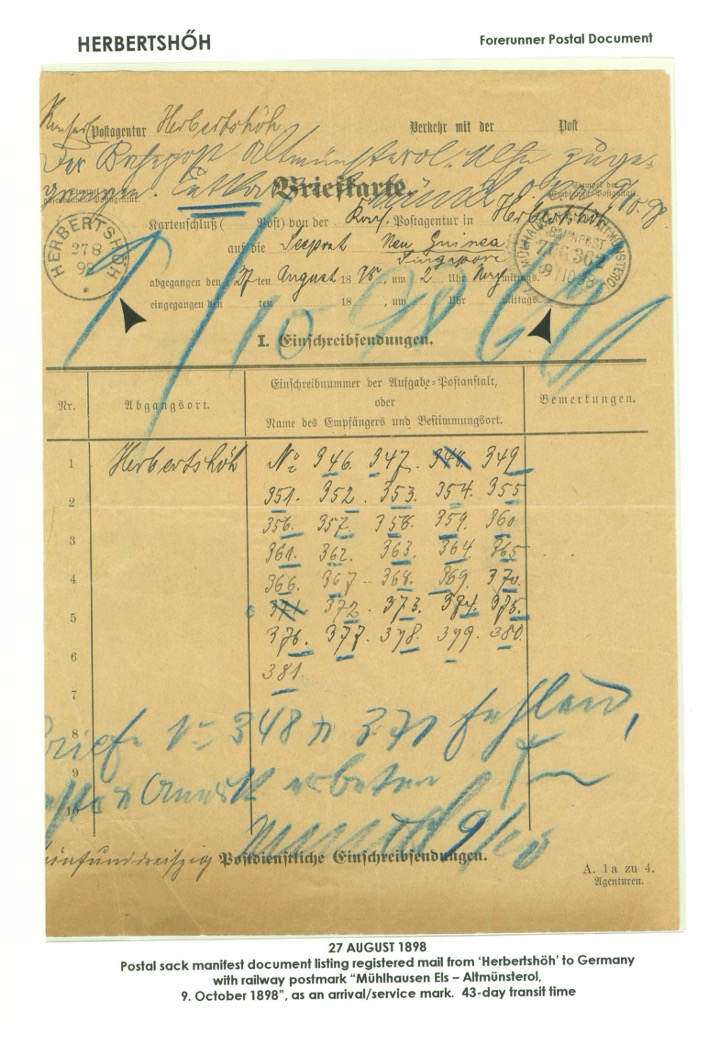 HERBERTSHŐH
Forerunner Postal Document
Postagentur Herbertshöh Verkehr mit der Post
Der Bahnpost Altmünsterol
Briefkarte.
HERBERTSHÖH
27 8
98
Kartenschluß ( Post) von der Kais. Postagentur in Herbertshöh
auf die Seepost Neu Guinea
Singapore
BAHNPOST
ZUG 362
abgegangen den 27ten August 1898, um 2 Uhr Nachmittags.
eingegangen den ten 18 , um Uhr mittags.
I. Einschreibsendungen.
Nr.
Abgangsort.
Einschreibnummer der Aufgabe-Postanstalt,
oder
Name des Empfängers und Bestimmungsort.
Bemerkungen.
1 Herbertshöh No 346. 347. 348. 349
2 351. 352. 353. 354. 355
356. 357. 358. 359. 360
3 361. 362. 363. 364. 365
4 366. 367. 368. 369. 370.
5 371. 372. 373. 374. 375.
376. 377. 378. 379. 380.
6 381.
7
8 Briefe No 348 371 fehlen,
9 erbeten
10
9/10
fünfunddreiszig Postdienstliche Einschreibsendungen.
A. 1a zu 4.
Agenturen.
27 AUGUST 1898
Postal sack manifest document listing registered mail from ‘Herbertshöh’ to Germany
with railway postmark “Mühlhausen Els – Altmünsterol,
9. October 1898”, as an arrival/service mark. 43-day transit time